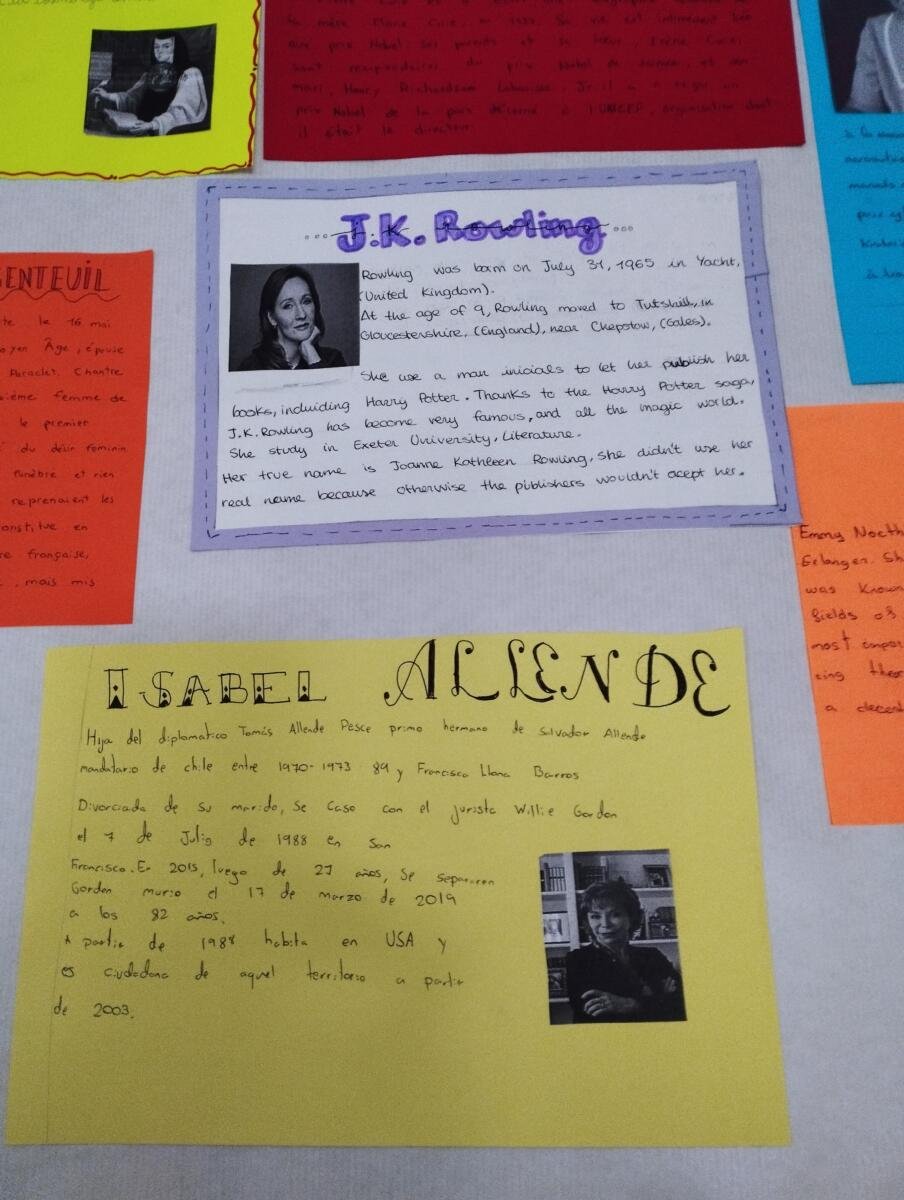 la mère Marie Curie, en 1937. Sa vie est intimement liée
aux prix Nobel: ses parents et sa sœur, Irène Curie,
sont récipiendaires du prix Nobel de science, et son
mari, Henry Richardson Labouisse, Jr. il a reçu un
prix Nobel de la paix décerné à l'UNICEF, organisation dont
il était le directeur.
J.K. Rowling
Rowling was born on July 31, 1965 in Yacht,
(United Kingdom).
At the age of 9, Rowling moved to Tutshill, in
Gloucestershire, (England), near Chepstow, (Gales).
She use a man inicials to let her publish her
books, incluiding Harry Potter. Thanks to the Harry Potter saga,
J.K. Rowling has become very famous, and all the magic world.
She study in Exeter University, Literature.
Her true name is Joanne Kathleen Rowling, she didn't use her
real name because otherwise the publishers wouldn't acept her.
GENTEUIL
le 16 mai
oyen Âge, épouse
Paraclet. Chantre
ième femme de
le premier
du désir féminin
funèbre et rien
reprenaient les
en
re française,
, mais mis
Emmy Noeth
Erlangen. Sh
was known
fields of
most impor
cing theor
a decent
ISABEL ALLENDE
Hija del diplomatico Tomás Allende Pesce primo hermano de Salvador Allende
mandatario de chile entre 1970-1973 89 y Francisca Llona Barros
Divorciada de su marido, se caso con el jurista Willie Gordon
el 7 de Julio de 1988 en San
Francisco. En 2015, luego de 27 años, se separaron
Gordon murio el 17 de marzo de 2019
a los 82 años.
A partir de 1988 habita en USA y
es ciudadana de aquel territorio a partir
de 2003.